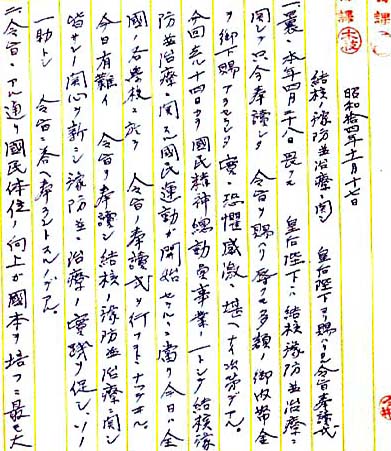 昭和拾四年十一月十六日
結核ノ豫防並治療ニ関シ 皇后陛下ヨリ賜ハリタル令旨奉讀式
一、曩ニ本年四月二十八日畏クモ 皇后陛下ニハ結核豫防並治療ニ
関シ只今奉讀シタ 令旨ヲ賜ハリ辱クモ多額ノ御内帑金
ヲ御下賜アラセラレ実ニ恐懼感激ニ堪ヘナイ次第デアル。
今回去ル十四日ヨリ國民精神總動員事業ノ一トシテ結核豫
防並治療ニ関スル國民運動ガ開始セラルルニ當リ今日ハ全
國ノ各學校ニ於テ 令旨ノ奉讀式ヲ行フコトトナッタ
今日有難イ 令旨ヲ奉讀シ結核ノ豫防並治療ニ関シ
皆サンノ関心ヲ新ニシ豫防並ニ治療ノ實践ヲ促シ、ソノ
一助トシ 令旨ニ答ヘ奉ラントスルノデアル。
二、令旨ニアル通リ國民体位ノ向上ガ國本ヲ培フニ最モ大